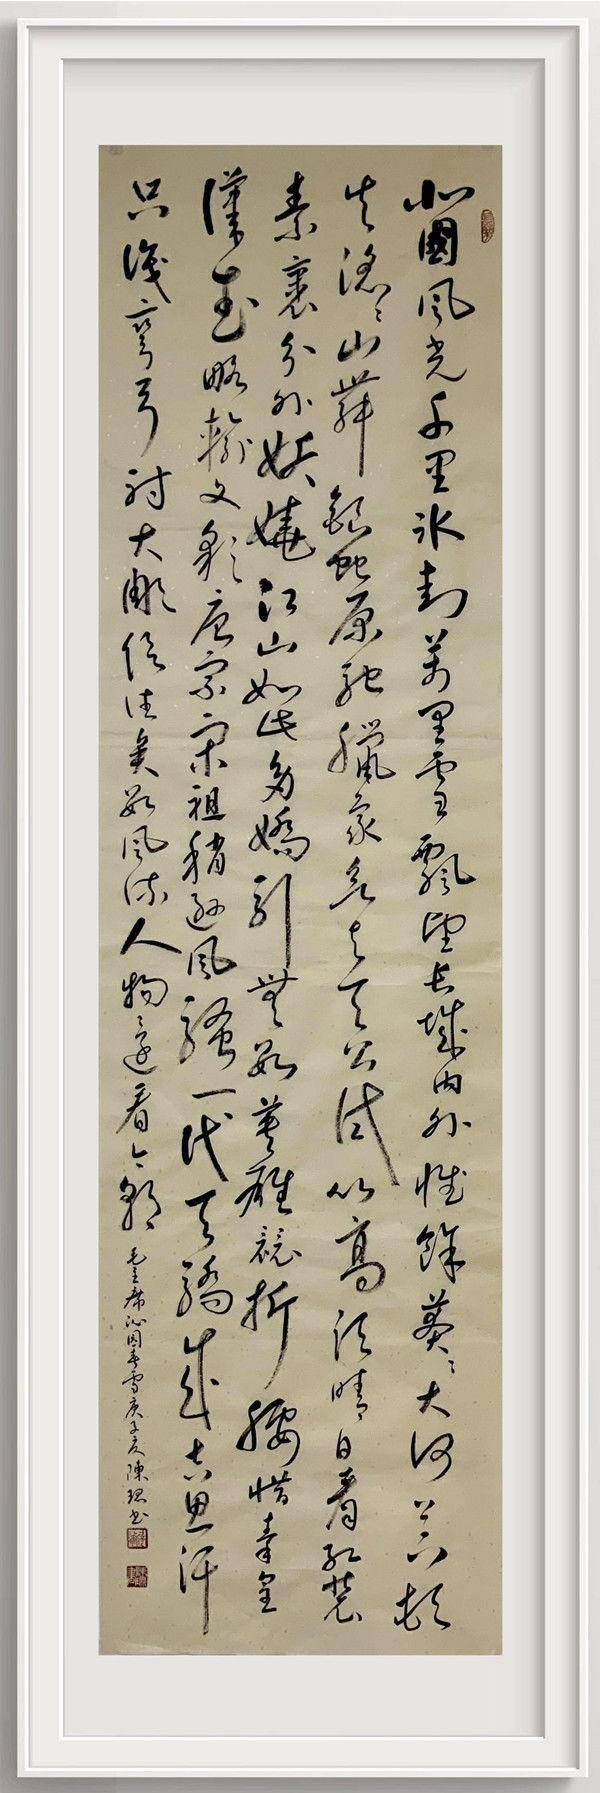 北國風光千里冰封萬里雪飄望長城內外惟餘莽〻大河上下頓
失滔〻山舞銀蛇原馳臘象欲與天公試比高須晴日看紅裝
素裹分外妖嬈江山如此多嬌引無數英雄競折腰惜秦皇
漢武略輸文彩唐宗宋祖稍遜風騷一代天驕成吉思汗
只識彎弓射大雕俱往矣數風流人物還看今朝
毛主席沁園春雪庚子夏陳書